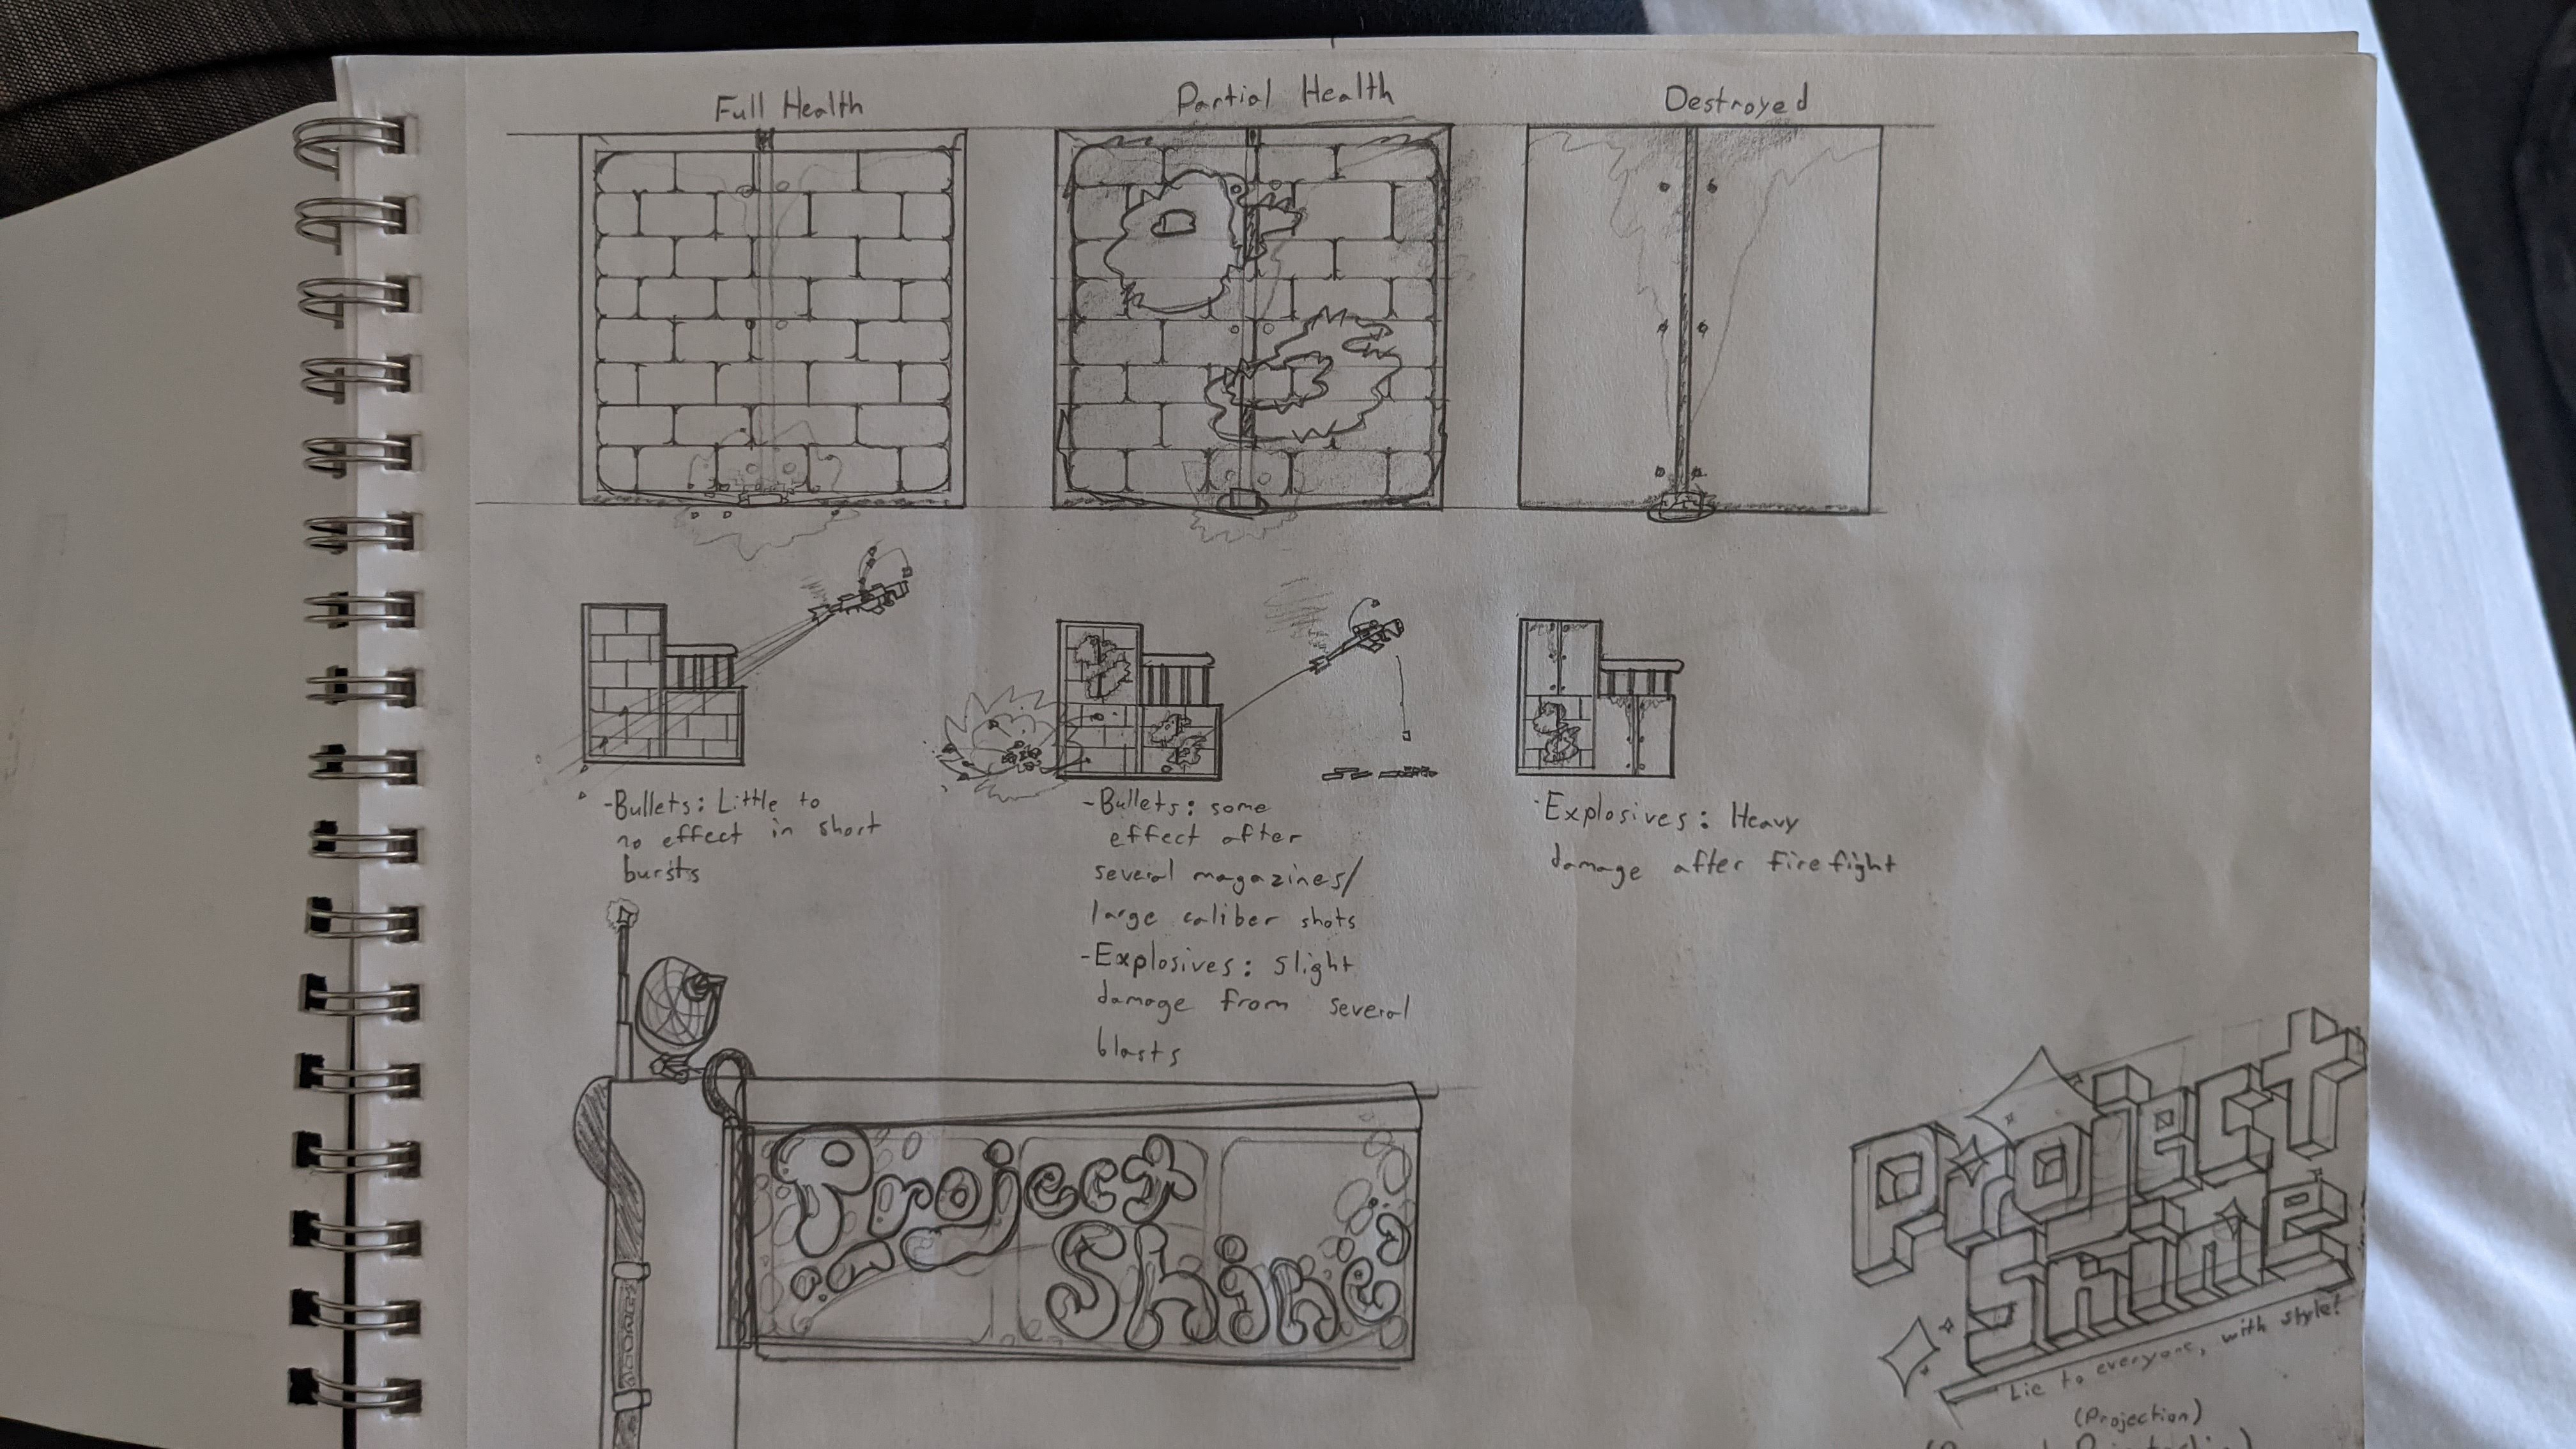 Full Health
Partial Health
Destroyed
-Bullets: Little to
no effect in short
bursts
-Bullets: some
effect after
several magazines/
large caliber shots
-Explosives: Slight
damage from several
blasts
-Explosives: Heavy
damage after firefight
Project
Shine
Project
Shine
Lie to everyone, with style!
(Projection)